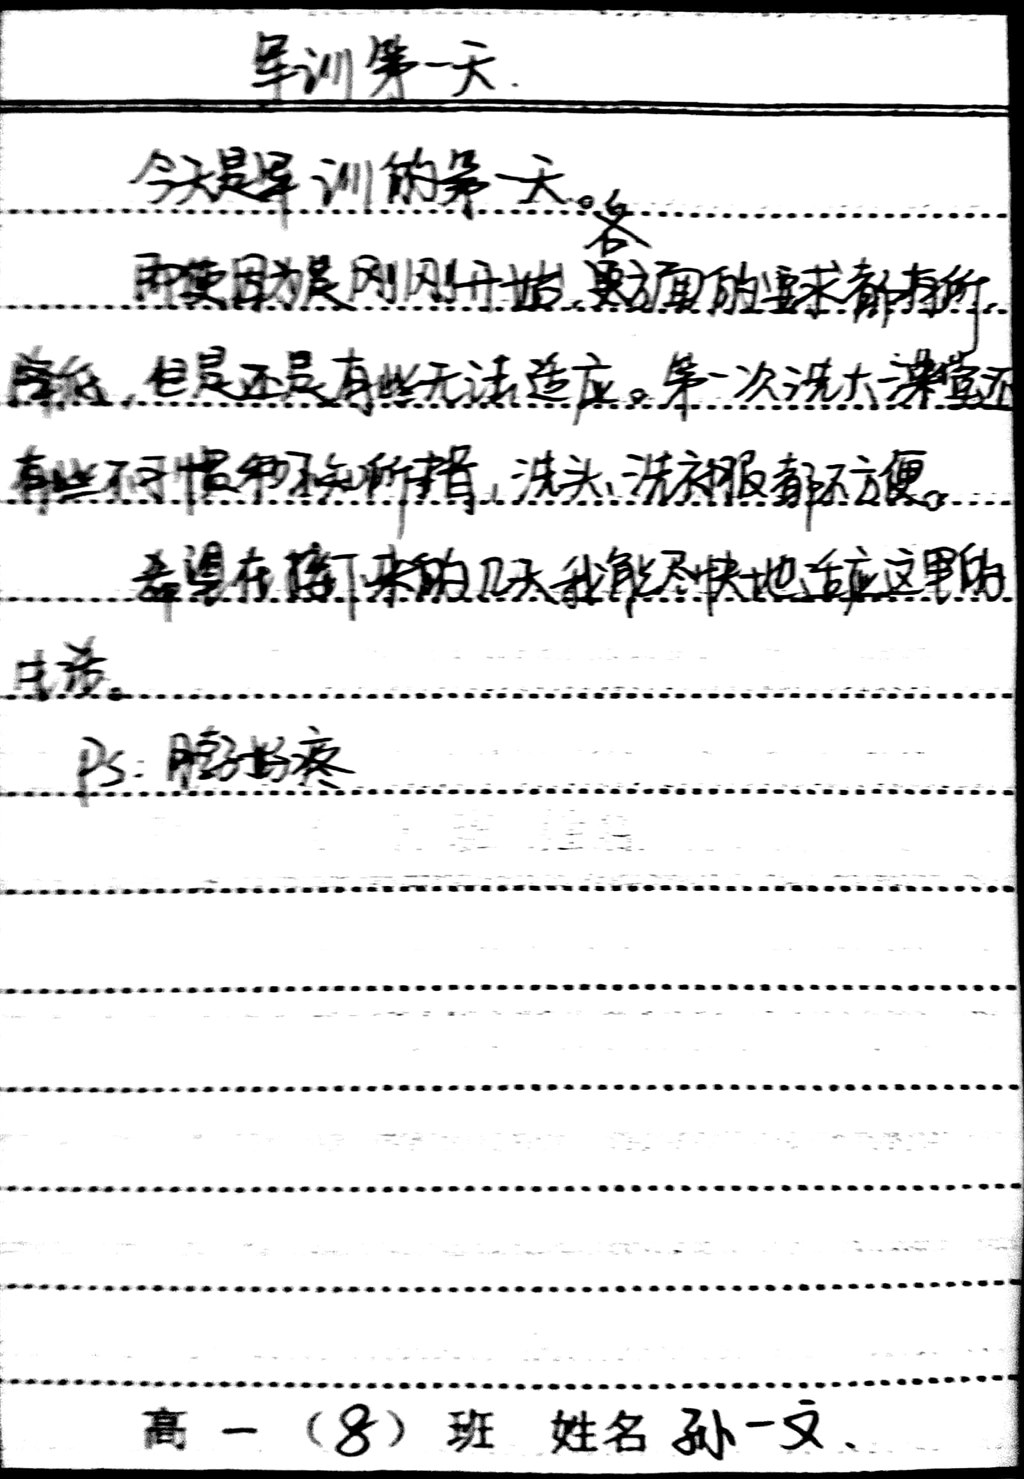 军训第一天.
今天是军训的第一天。
即使因为是刚刚开始,各方面的要求都有所
降低,但是还是有些无法适应。第一次洗大澡堂还
有些不习惯和不知所措,洗头、洗衣服都不方便。
希望在接下来的几天我能尽快地适应这里的
生活。
Ps:脖子好疼
高一(8)班 姓名 孙一文.